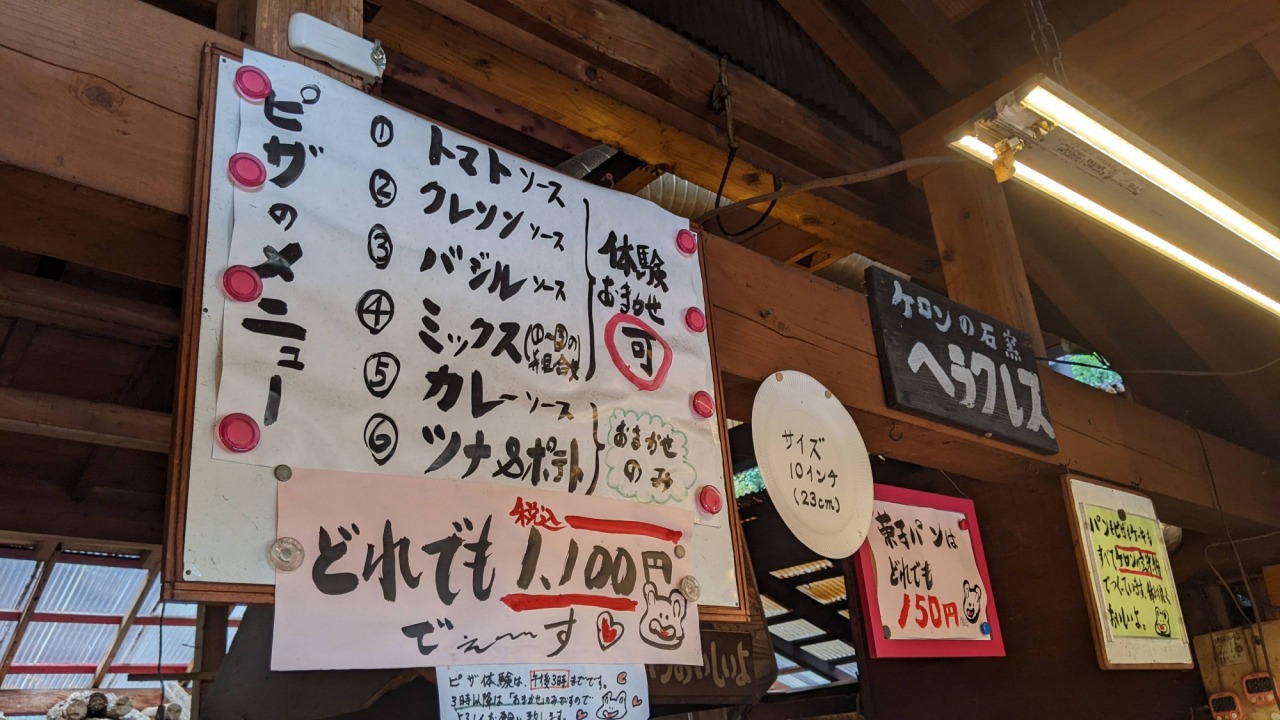 ピザのメニュー
① トマトソース
② クレソンソース
③ バジルソース
④ ミックス(①〜③の
組合せ)
⑤ カレーソース
⑥ ツナ&ポテト
体験
おまかせ
可
おまかせ
のみ
どれでも 税込 1,100円
でぇーす
ピザ体験は、午後3時までです。
3時以降は「おまかせ」のみですので
よろしくお願い致します。
サイズ
10インチ
(23cm)
ケロンの石窯
ヘラクレス
菓子パンは
どれでも
150円
パンもピザもケーキも
すべてケロンの
おいしいよ。